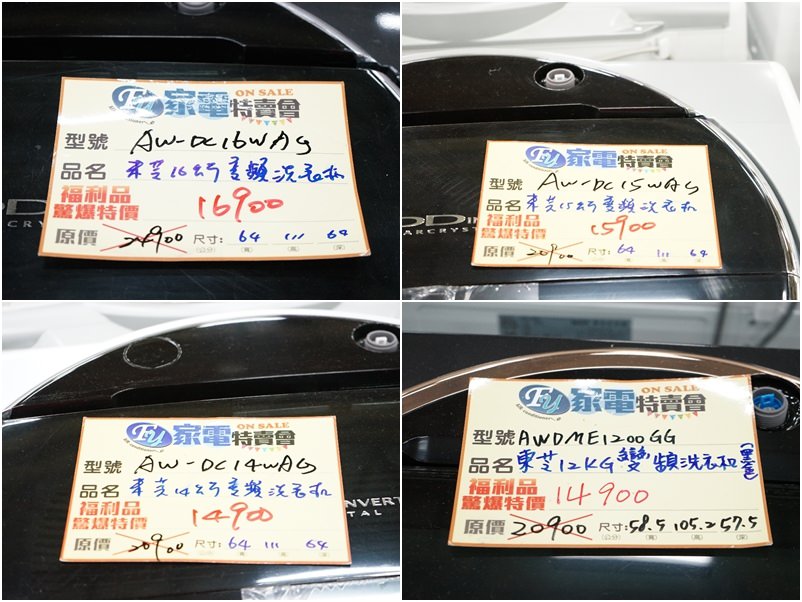 EY 家電特賣會 ON SALE
型號 AW-DC16WAG
品名 東芝16公斤变頻洗衣机
福利品
驚爆特價 16900
原價 24900 尺寸: 64 111 64
(公分) (寬) (高) (深)
EY 家電特賣會 ON SALE
型號 AW-DC15WAG
品名 東芝15公斤变頻洗衣机
福利品
驚爆特價 15900
原價 20900 尺寸: 64 111 64
(公分) (寬) (高) (深)
EY 家電特賣會 ON SALE
型號 AW-DC14WAG
品名 東芝14公斤变頻洗衣机
福利品
驚爆特價 14900
原價 20900 尺寸: 64 111 64
(公分) (寬) (高) (深)
EY 家電特賣會 ON SALE
型號 AWDME1200GG
品名 東芝12KG變頻洗衣机(黑色)
福利品
驚爆特價 14900
原價 20900 尺寸: 58.5 105.2 57.5
(公分) (寬) (高) (深)